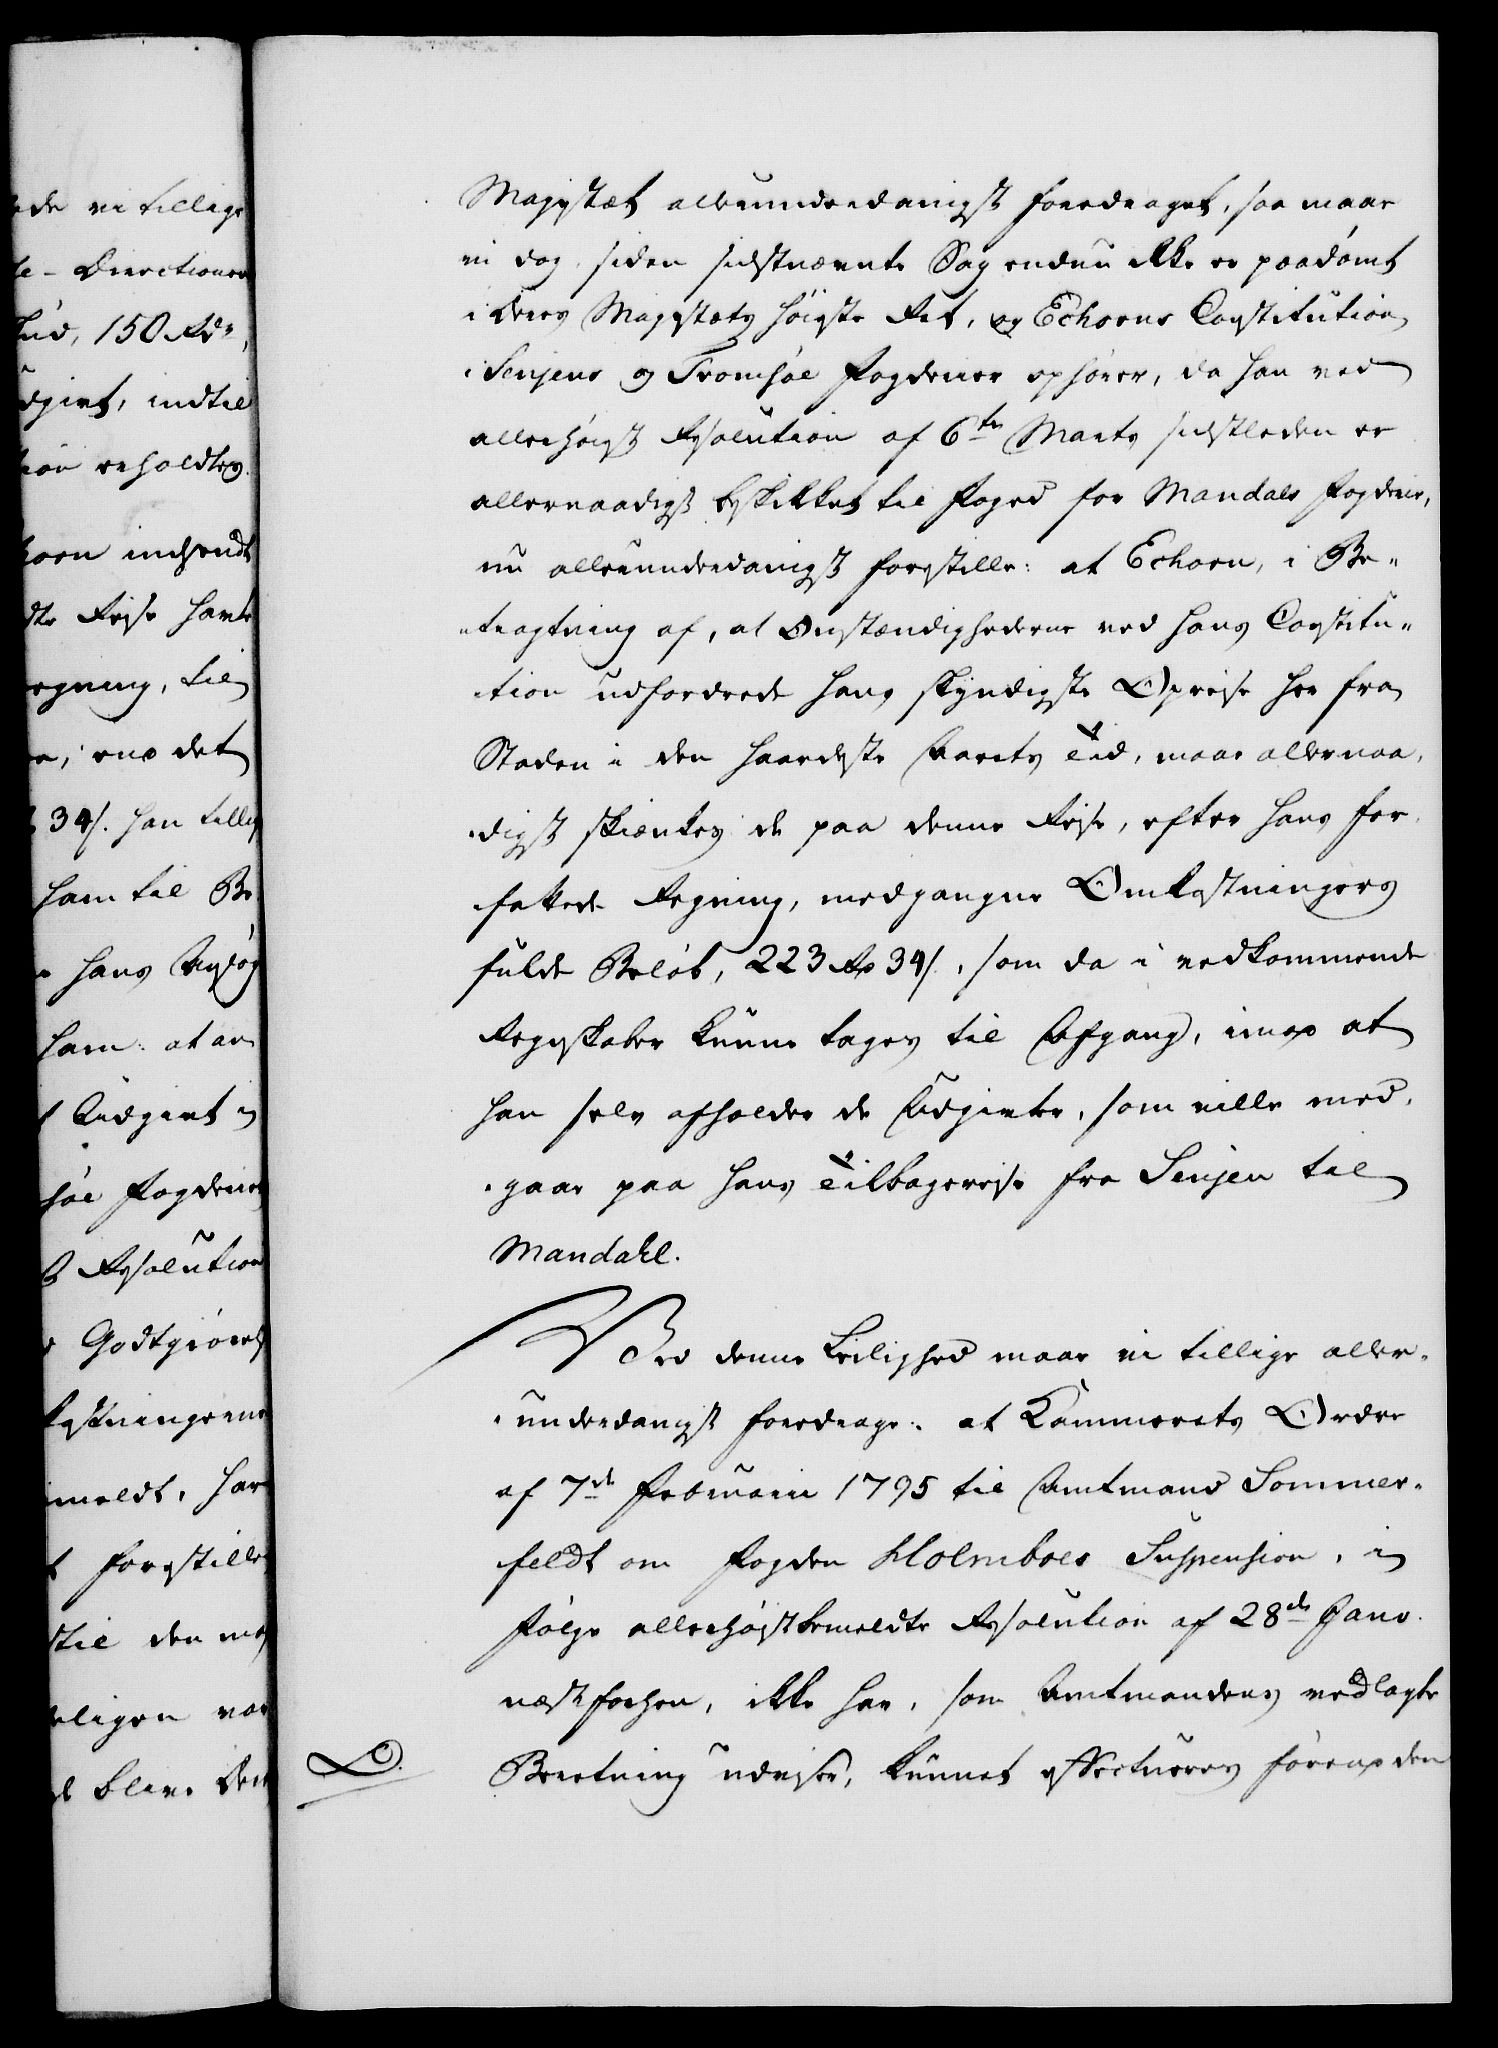 ede vi tillige
te - Directionen
kud, 150 Rdr,
dgivt, indtil
tion erholdtes.
horn indsendt
dte Reise havde
egning, til
e, imod det
34 s. han tillig
ham til Be
hans Ansøg
ham: at an
Udgivt i
søe Fogderier
Resolution
Godtgiørels
kostningerne
meldt, har
forestille
til den mod
eligen var
blive Den
Majestæt allerunderdanigst foredraget, saa maae
vi dog, siden sidstnævnte Sag endnu ikke er paadömt
i Deres Majestæts Höieste Ret, og Echorns Constitution
i Senjens og Tromsöe Fogderier ophörer, da han ved
allerhöiest Resolution af 6te Marts sidstleden er
allernaadigst beskikket til Foged for Mandals Fogderie,
nu allerunderdanigst forestille: at Echorn, i Be-
tragtning af, at Omstændighederne ved hans Constitu-
tion udfordrede hans skyndigste Opreise her fra
Staden i den haardeste Aarets Tid, maae allernaa-
digst skienkes de paa denne Reise, efter hans for-
fattede Regning, medgangne Omkostningers
fulde Beløb, 223 Rd 34 s., som da i vedkommende
Regnskaber kunne tages til Afgang, imod at
han selv afholder de Udgivter, som ville med-
gaae paa hans Tilbagereise fra Senjen til
Mandahl.
Ved denne Leilighed maae vi tillige aller-
underdanigst foredrage: at Kammerets Ordre
af 7de Februarii 1795 til Amtmand Sommer-
feldt om Fogden Holmboes Suspension, i
Følge allerhøistbemeldte Resolution af 28de Janv.
næstforhen, ikke har, som Amtmandens vedlagte
D.
Beretning udviser, kunnet effectueres förend den